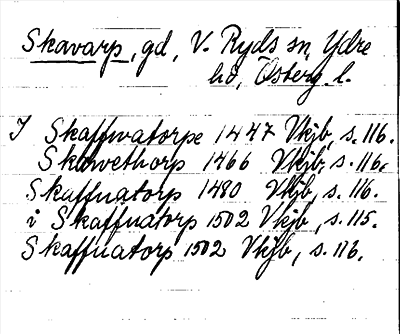 Skavarp, gd, V. Ryds sn, Ydre
hd, Österg. l.
I Skaffwatorpe 1447 Vkjb, s. 116.
Skawethorp 1466 Vkjb, s. 116.
Skaffuatorp 1480 Vkjb, s. 116.
i Skaffuatorp 1502 Vkjb, s. 115.
Skaffuatorp 1502 Vkjb, s. 116.